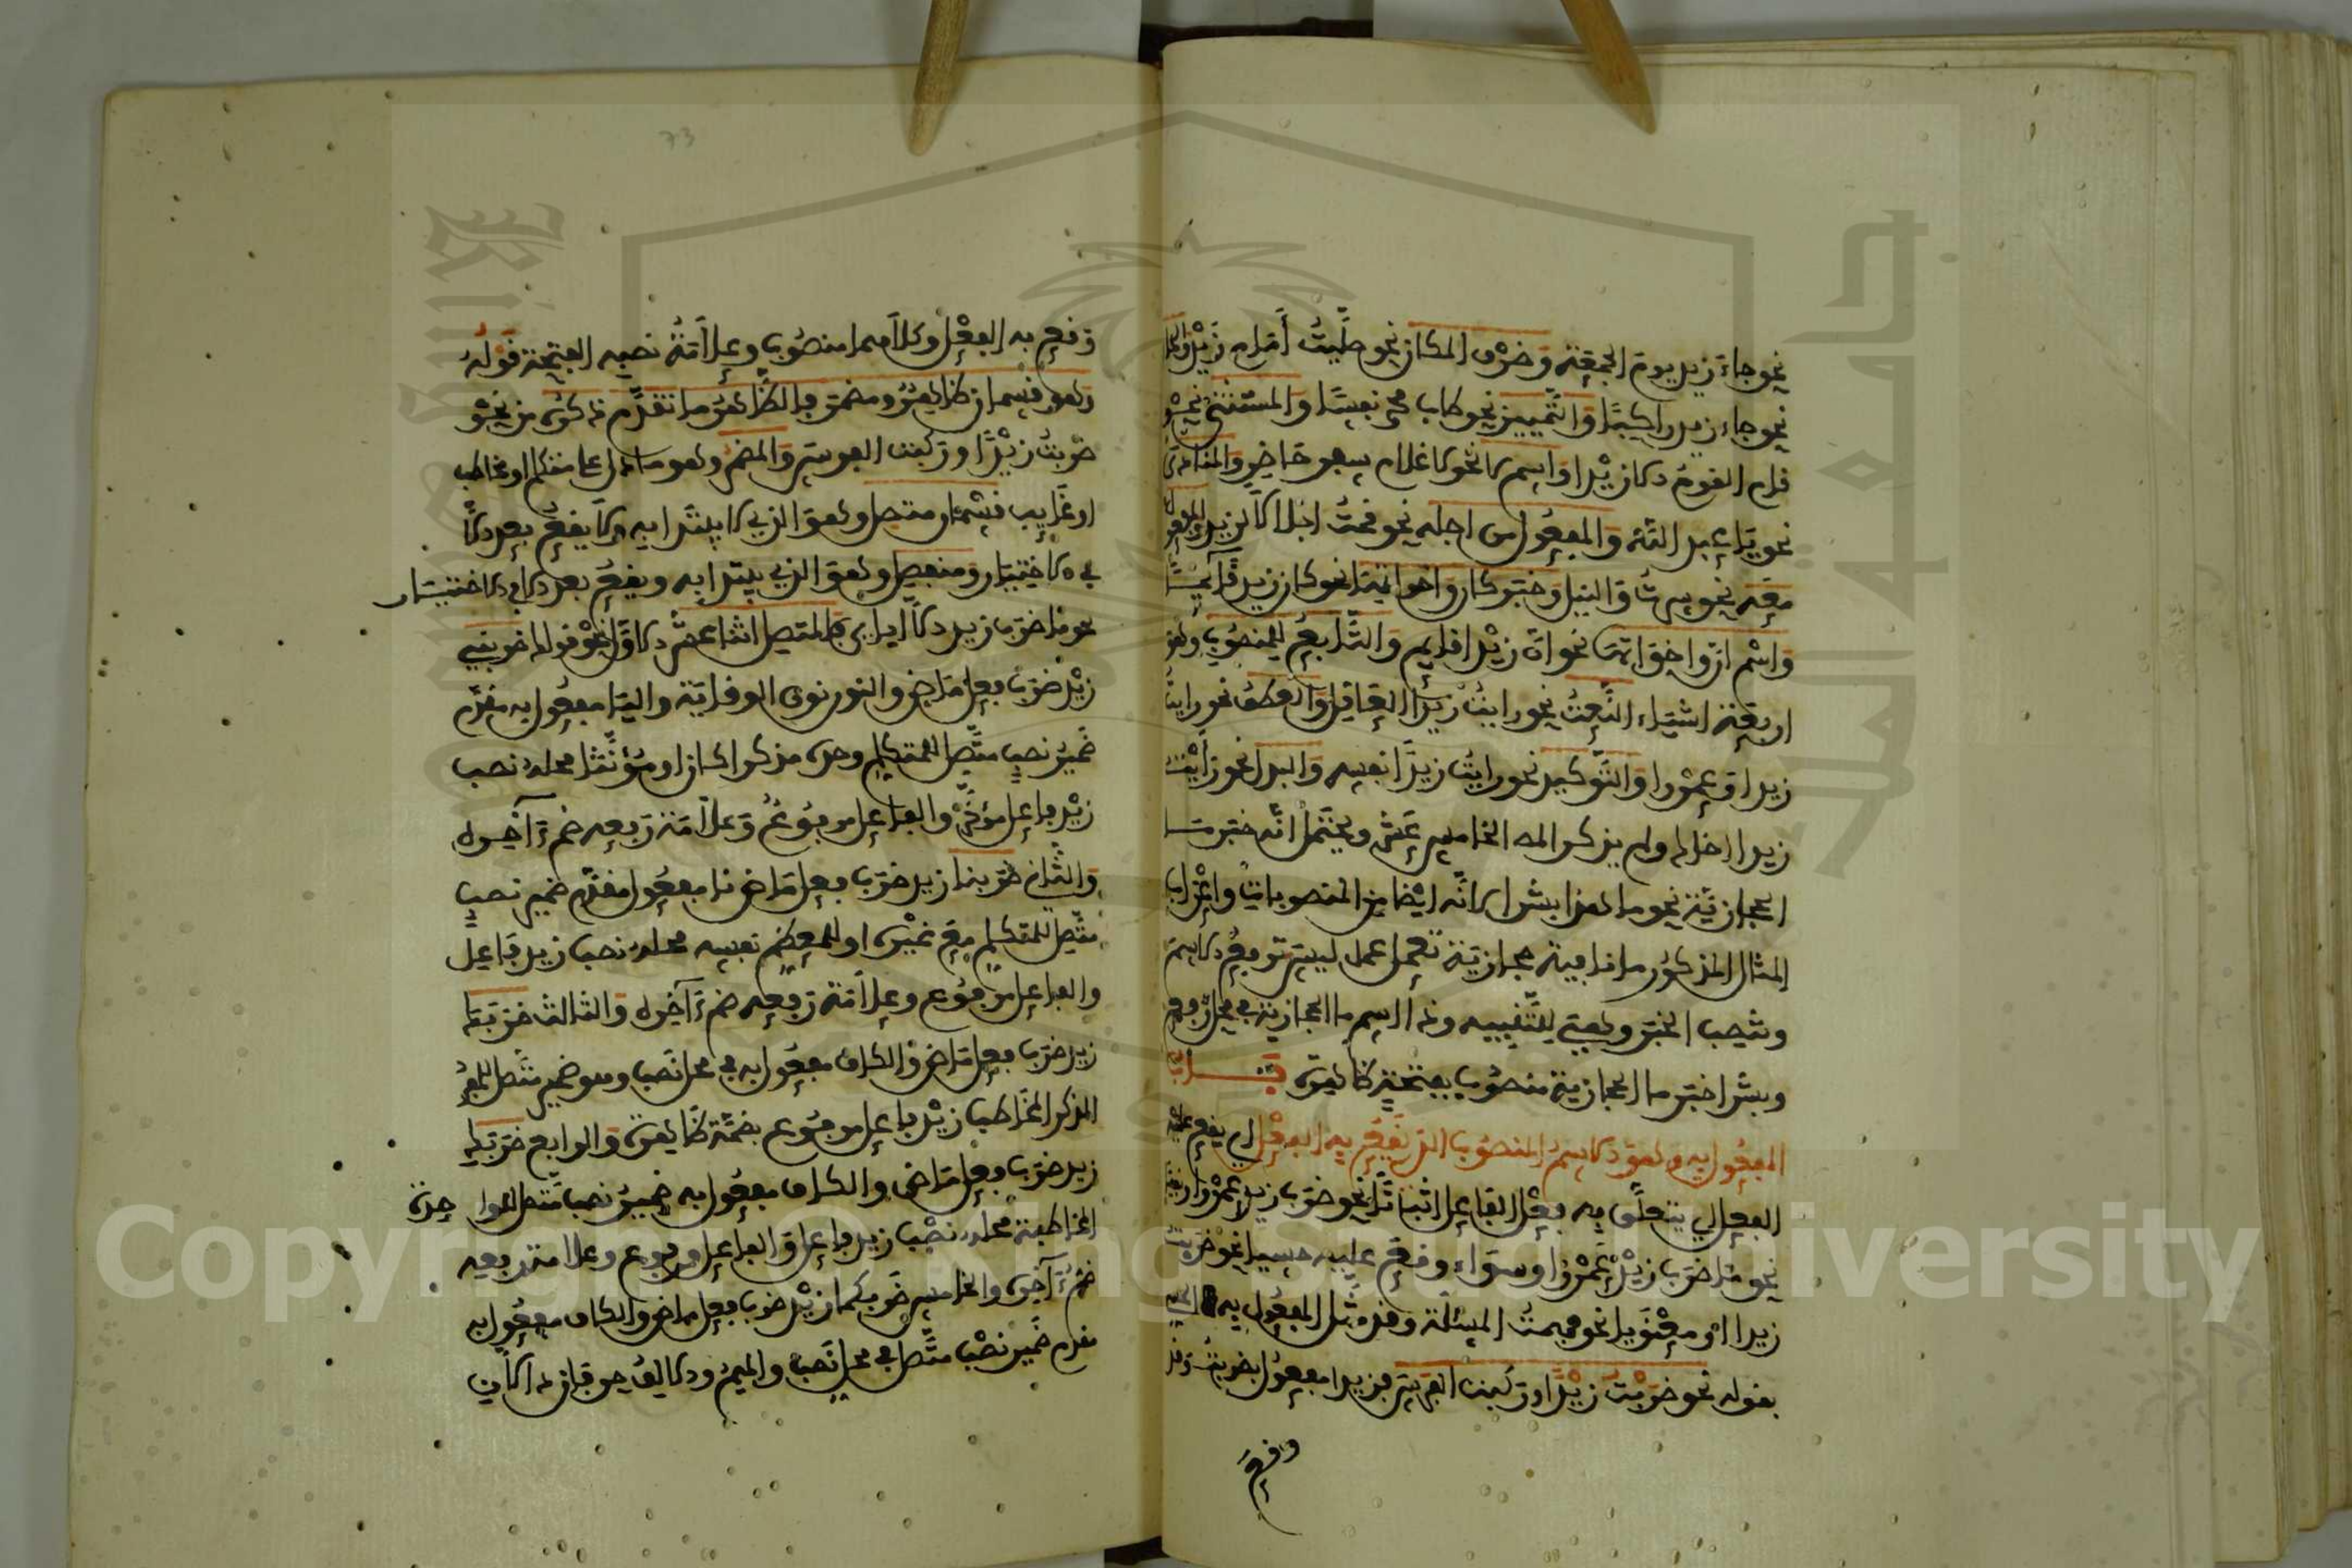 نحو جاء زيد يوم الجمعة وظرف المكان نحو صليت أمام زيد والحال
نحو جاء زيد راكبا والتمييز نحو طاب محمد نفسا والمستثنى نحو
قام القوم الا زيدا واسم لا نحو لا غلام سفر حاضر والمنادى
نحو يا عبد الله والمفعول من اجله نحو قمت اجلالا لزيد والمفعول
معه نحو سرت والنيل وخبر كان واخواتها نحو كان زيد قائما
واسم ان واخواتها نحو ان زيدا قايم والتابع للمنصوب وهو
اربعة اشياء النعت نحو رايت زيدا العاقل والعطف نحو رايت
زيدا وعمروا والتوكيد نحو رايت زيدا نفسه والبدل نحو رايت
زيدا اخاك ولم يذكر المص الخامس عشر ويحتمل انه خبر ما
الحجازية نحو ما هذا بشرا لانه ايضا من المنصوبات واعراب
المثال المذكور ما نافية حجازية تعمل عمل ليس ترفع الاسم
وتنصب الخبر وهي للتنبيه وذا اسم ما الحجازية في محل رفع
وبشرا خبر ما الحجازية منصوب بفتحة ظاهرة باب
المفعول به وهو الاسم المنصوب الذي يقع به الفعل اي يقع عليه
الفعل اي يتعلق به فعل الفاعل اثباتا نحو ضرب زيد عمروا او نفيا
نحو ما ضرب زيد عمروا وسواء وقع عليه حسيا نحو ضربت
زيدا او معنويا نحو فهمت المسئلة وقد مثل المفعول به
بقوله نحو ضربت زيدا وركبت الفرس فزيدا مفعول بضربت وقد
وقع
73
وقع به الفعل وكلاهما منصوب وعلامة نصبه الفتحة قوله
وهو قسمان ظاهر ومضمر فالظاهر ما تقدم ذكره من نحو
ضربت زيدا وركبت الفرس والمضمر وهو ما دل على متكلم او مخاطب
او غايب قسمان متصل وهو الذي لا يبتدا به ولا يقع بعد الا
في الاختيار ومنفصل وهو الذي يبتدا به ويقع بعد الا في الاختيار
نحو ما ضرب زيد الا اياي فالمتصل اثنا عشر الاول نحو قولك ضربني
زيد ضرب فعل ماض والنون نون الوقاية واليا مفعول به مقدم
ضمير نصب متصل للمتكلم وحده مذكرا كان او مؤنثا محله نصب
زيد فاعل مؤخر والفاعل مرفوع وعلامة رفعه ضم آخره
والثاني ضربنا زيد ضرب فعل ماض نا مفعول مقدم ضمير نصب
متصل للمتكلم مع غيره او للمعظم نفسه محله نصب زيد فاعل
والفاعل مرفوع وعلامة رفعه ضم آخره والثالث ضربك
زيد ضرب فعل ماض والكاف مفعول به في محل نصب وهو ضمير متصل للمفرد
المذكر المخاطب زيد فاعل مرفوع بضمة ظاهرة والرابع ضربك
زيد ضرب فعل ماض والكاف مفعول به ضمير نصب متصل للواحدة
المخاطبة محله نصب زيد فاعل والفاعل مرفوع وعلامة رفعه
ضم آخره والخامس ضربكما زيد ضرب فعل ماض والكاف مفعول به
مقدم ضمير نصب متصل في محل نصب والميم والالف حرفان دالان